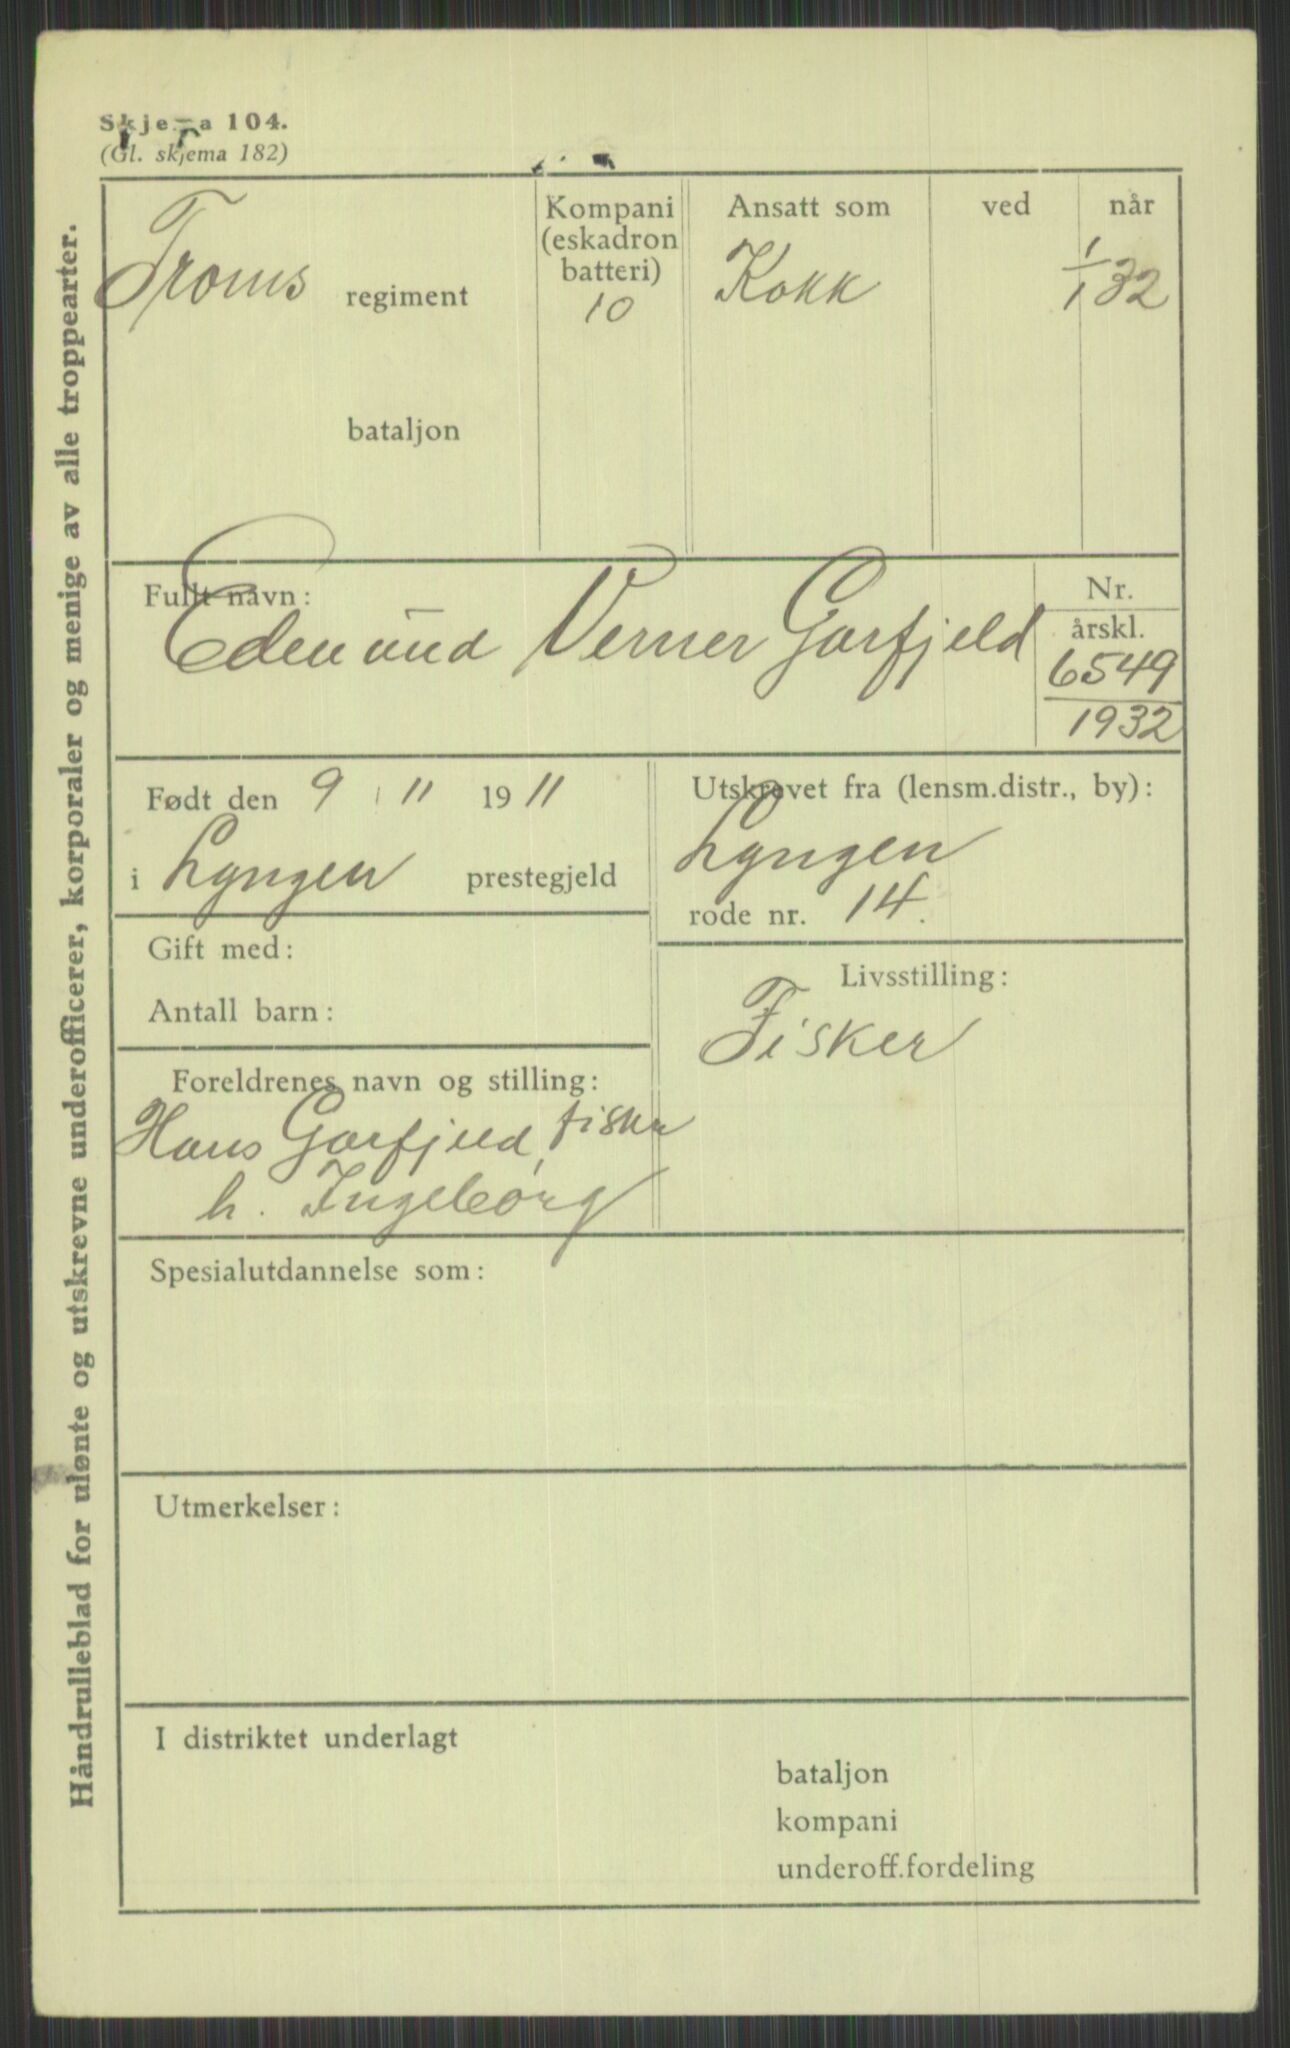 Skjema 104.
(Gl. skjema 182)
Håndrulleblad for ulønte og utskrevne underofficerer, korporaler og menige av alle troppearter.
Troms regiment
bataljon
Kompani
(eskadron
batteri)
10
Ansatt som
Kokk
ved
når
1/1 32
Fullt navn:
Edmund Verner Garfjeld
Nr.
årskl.
6549
1932
Født den 9 11 1911
i Lyngen prestegjeld
Utskrevet fra (lensm.distr., by):
Lyngen
rode nr. 14.
Gift med:
Antall barn:
Livsstilling:
Fisker
Foreldrenes navn og stilling:
Hans Garfjeld, fisker
h. Ingeborg
Spesialutdannelse som:
Utmerkelser:
I distriktet underlagt
bataljon
kompani
underoff.fordeling